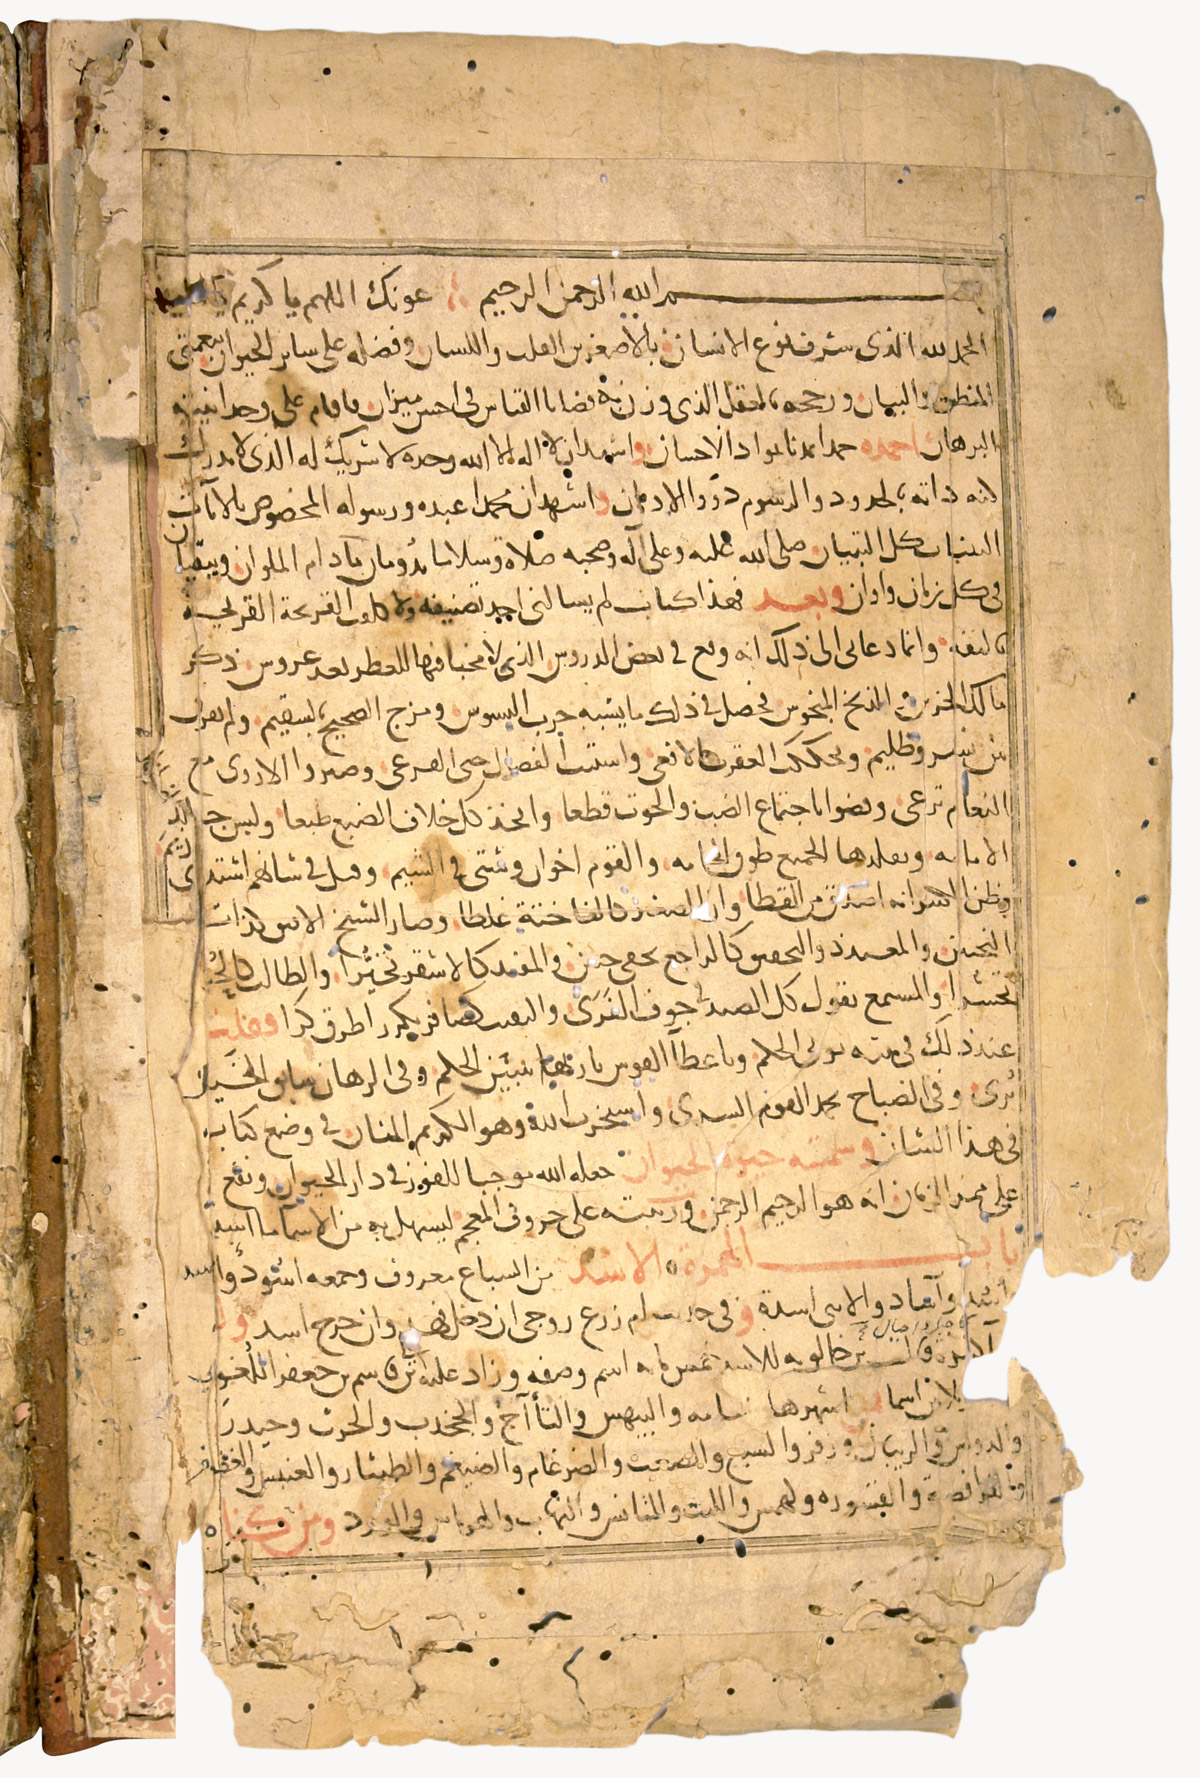 بسم الله الرحمن الرحيم عونك اللهم يا كريم
الحمد لله الذي شرف نوع الانسان بالاصغرين القلب واللسان وفضله على ساير الحيوان بنعمتي
المنطق والبيان ورجحه بالعقل الذي وزن به قضايا القياس في احسن ميزان فاقام على وحدانيته
البرهان احمده حمدا يمدنا بمواد الاحسان واشهد ان لا اله الا الله وحده لا شريك له الذي لا يدرك
كنه ذاته بالحدود والرسوم ذوو الاذهان واشهد ان محمدا عبده ورسوله المخصوص بالايات
البينات كل التبيان صلى الله عليه وعلى آله وصحبه صلاة وسلاما يدومان ما دام الملوان ويبقيان
في كل زمان واوان وبعد فهذا كتاب لم يسالني احد تصنيفه ولا كلفت القريحة
تاليفه وانما دعاني الى ذلك انه وقع في بعض الدروس الذي لا مخبا فيها لعطر بعد عروس ذكر
مالك الحزين والذيخ المنحوس فحصل في ذلك ما يشبه حرب البسوس ومزج الصحيح بالسقيم ولم يفرق
بين نسر وظليم وتحككت العقرب بالافعى واستنت الفصال حتى القرعى وصيروا الاروى مع
النعام ترعى وقضوا باجتماع الضب والحوت قطعا واتخذ كل اخلاق الضبع طبعا ولبس جلد النمر
الامامه وتقلدها الجميع طوق الحمامه والقوم اخوان وشتى في الشيم وقيل في شانهم اشتدي زيم
وظن الكبير انه اصدق من القطا وان الصغير كالفاختة غلطا وصار الشيخ الافيق كذات
النحيين والمعيد ذو التحقيق كالراجع بخفي حنين والمفيد كالاشقر تحيرا والطالب كالحبارى
تحسرا والمستمع يقول كل الصيد في جوف الفرى والنقيب كصافر يكرر اطرق كرا فقلت
عند ذلك في بيته يوتى الحكم وباعطا القوس باريها تتبين الحكم وفي الرهان سابق الخيل
يرى وفي الصباح يحمد القوم السرى واستخرت الله وهو الكريم المنان في وضع كتاب
في هذا الشان وسميته حيوة الحيوان جعله الله موجبا للفوز في دار الحيوان ونفع به
على ممر الزمان انه هو الرحيم الرحمن ورتبته على حروف المعجم ليسهل به من الاسما ما استعجم
باب الهمزة الاسد من السباع معروف وجمعه اسود واسد
وآساد والانثى اسدة وفي حديث ام زرع زوجي ان دخل فهد وان خرج اسد
قال بن خالويه للاسد خمس مايه اسم وصفه وزاد عليه قاسم بن جعفر اللغوي
ثلاثين اسما اشهرها اسامه والبيهس والتأآج والجخدب والحرث وحيدر
والدواس والريبال وزفر والسبع والصعب والضرغام والضيغم والطيثار والعنبس والغضنفر
والفرافصة والقسوره وكهمس والليث والمتانس والتهاب والهرماس والورد ومن كناه